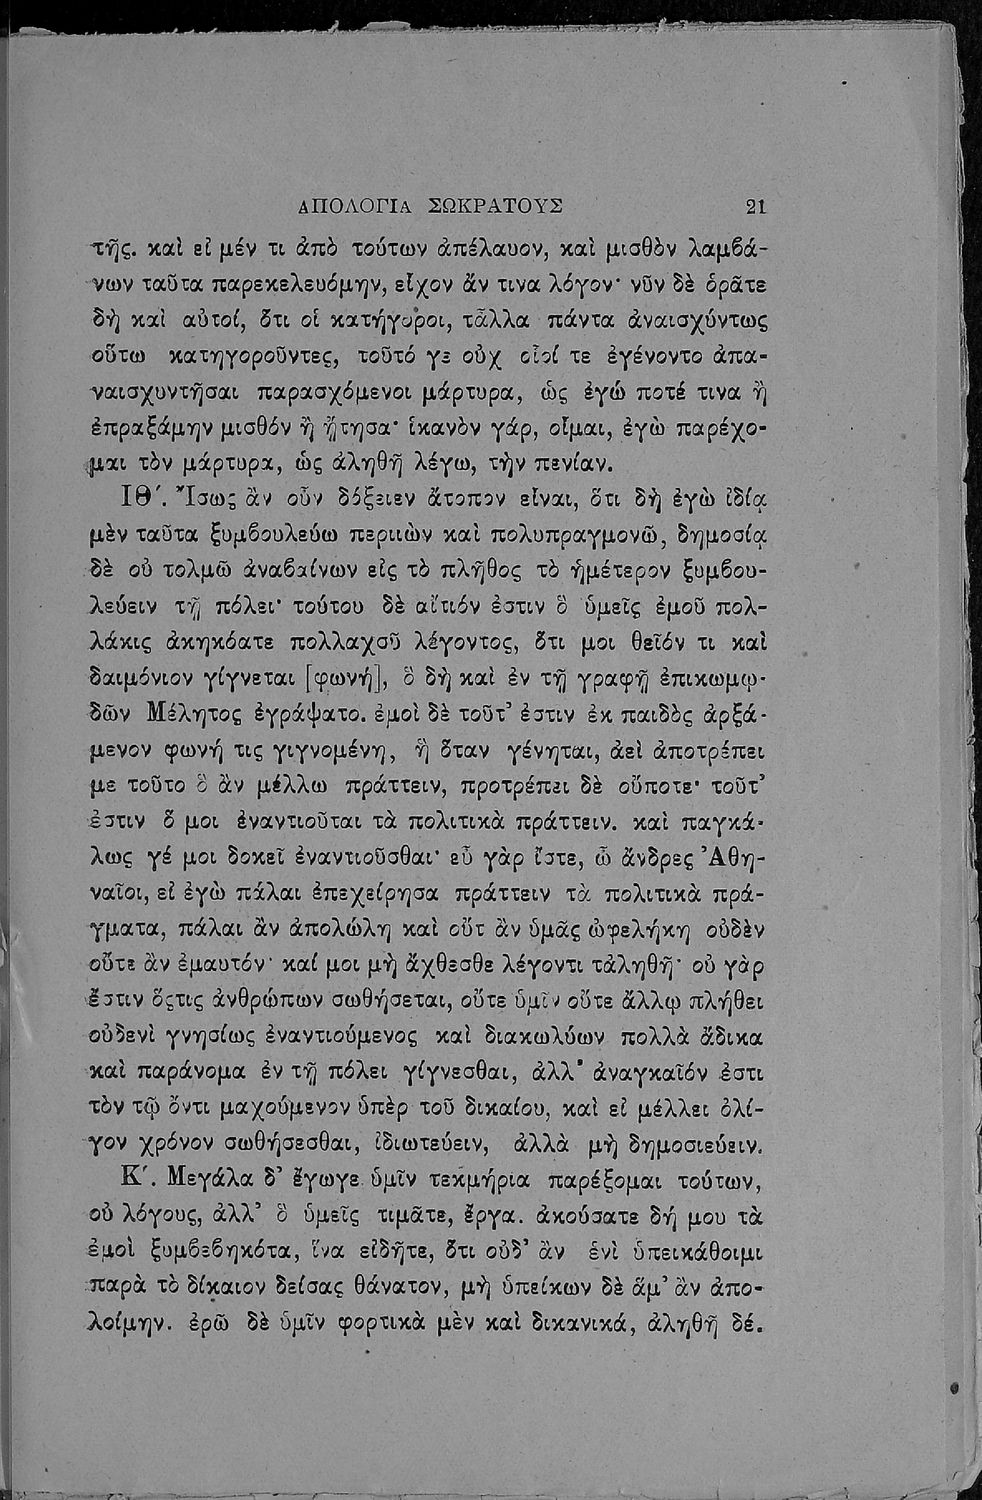 ΑΠΟΛΟΓΙΑ ΣΩΚΡΑΤΟΥΣ 21
τῆς. καὶ εἰ μέν τι ἀπὸ τούτων ἀπέλαυον, καὶ μισθὸν λαμβά-
νων ταῦτα παρεκελευόμην, εἶχον ἄν τινα λόγον· νῦν δὲ ὁρᾶτε
δὴ καὶ αὐτοί, ὅτι οἱ κατήγοροι, τἆλλα πάντα ἀναισχύντως
οὕτω κατηγοροῦντες, τοῦτό γε οὐχ οἷοί τε ἐγένοντο ἀπα-
ναισχυντῆσαι παρασχόμενοι μάρτυρα, ὡς ἐγώ ποτέ τινα ἢ
ἐπραξάμην μισθόν ἢ ᾔτησα· ἱκανὸν γάρ, οἶμαι, ἐγὼ παρέχο-
μαι τὸν μάρτυρα, ὡς ἀληθῆ λέγω, τὴν πενίαν.
ΙΘ΄. Ἴσως ἂν οὖν δόξειεν ἄτοπον εἶναι, ὅτι δὴ ἐγὼ ἰδίᾳ
μὲν ταῦτα ξυμβουλεύω περιιὼν καὶ πολυπραγμονῶ, δημοσίᾳ
δὲ οὐ τολμῶ ἀναβαίνων εἰς τὸ πλῆθος τὸ ἡμέτερον ξυμβου-
λεύειν τῇ πόλει· τούτου δὲ αἴτιόν ἐστιν ὃ ὑμεῖς ἐμοῦ πολ-
λάκις ἀκηκόατε πολλαχοῦ λέγοντος, ὅτι μοι θεῖόν τι καὶ
δαιμόνιον γίγνεται [φωνή], ὃ δὴ καὶ ἐν τῇ γραφῇ ἐπικωμῳ-
δῶν Μέλητος ἐγράψατο. ἐμοὶ δὲ τοῦτ᾽ ἐστιν ἐκ παιδὸς ἀρξά-
μενον φωνή τις γιγνομένη, ἣ ὅταν γένηται, ἀεὶ ἀποτρέπει
με τοῦτο ὃ ἂν μέλλω πράττειν, προτρέπει δὲ οὔποτε· τοῦτ᾽
ἐστιν ὅ μοι ἐναντιοῦται τὰ πολιτικὰ πράττειν. καὶ παγκά-
λως γέ μοι δοκεῖ ἐναντιοῦσθαι· εὖ γὰρ ἴστε, ὦ ἄνδρες Ἀθη-
ναῖοι, εἰ ἐγὼ πάλαι ἐπεχείρησα πράττειν τὰ πολιτικὰ πρά-
γματα, πάλαι ἂν ἀπολώλη καὶ οὔτ ἂν ὑμᾶς ὠφελήκη οὐδὲν
οὔτε ἂν ἐμαυτόν· καί μοι μὴ ἄχθεσθε λέγοντι τἀληθῆ· οὐ γὰρ
ἔστιν ὅςτις ἀνθρώπων σωθήσεται, οὔτε ὑμῖν οὔτε ἄλλῳ πλήθει
οὐδενὶ γνησίως ἐναντιούμενος καὶ διακωλύων πολλὰ ἄδικα
καὶ παράνομα ἐν τῇ πόλει γίγνεσθαι, ἀλλ᾽ ἀναγκαῖόν ἐστι
τὸν τῷ ὄντι μαχούμενον ὑπὲρ τοῦ δικαίου, καὶ εἰ μέλλει ὀλί-
γον χρόνον σωθήσεσθαι, ἰδιωτεύειν, ἀλλὰ μὴ δημοσιεύειν.
Κ΄. Μεγάλα δ᾽ ἔγωγε ὑμῖν τεκμήρια παρέξομαι τούτων,
οὐ λόγους, ἀλλ᾽ ὃ ὑμεῖς τιμᾶτε, ἔργα. ἀκούσατε δή μου τὰ
ἐμοὶ ξυμβεβηκότα, ἵνα εἰδῆτε, ὅτι οὐδ᾽ ἂν ἑνὶ ὑπεικάθοιμι
παρὰ τὸ δίκαιον δείσας θάνατον, μὴ ὑπείκων δὲ ἅμ᾽ ἂν ἀπο-
λοίμην. ἐρῶ δὲ ὑμῖν φορτικὰ μὲν καὶ δικανικά, ἀληθῆ δέ.